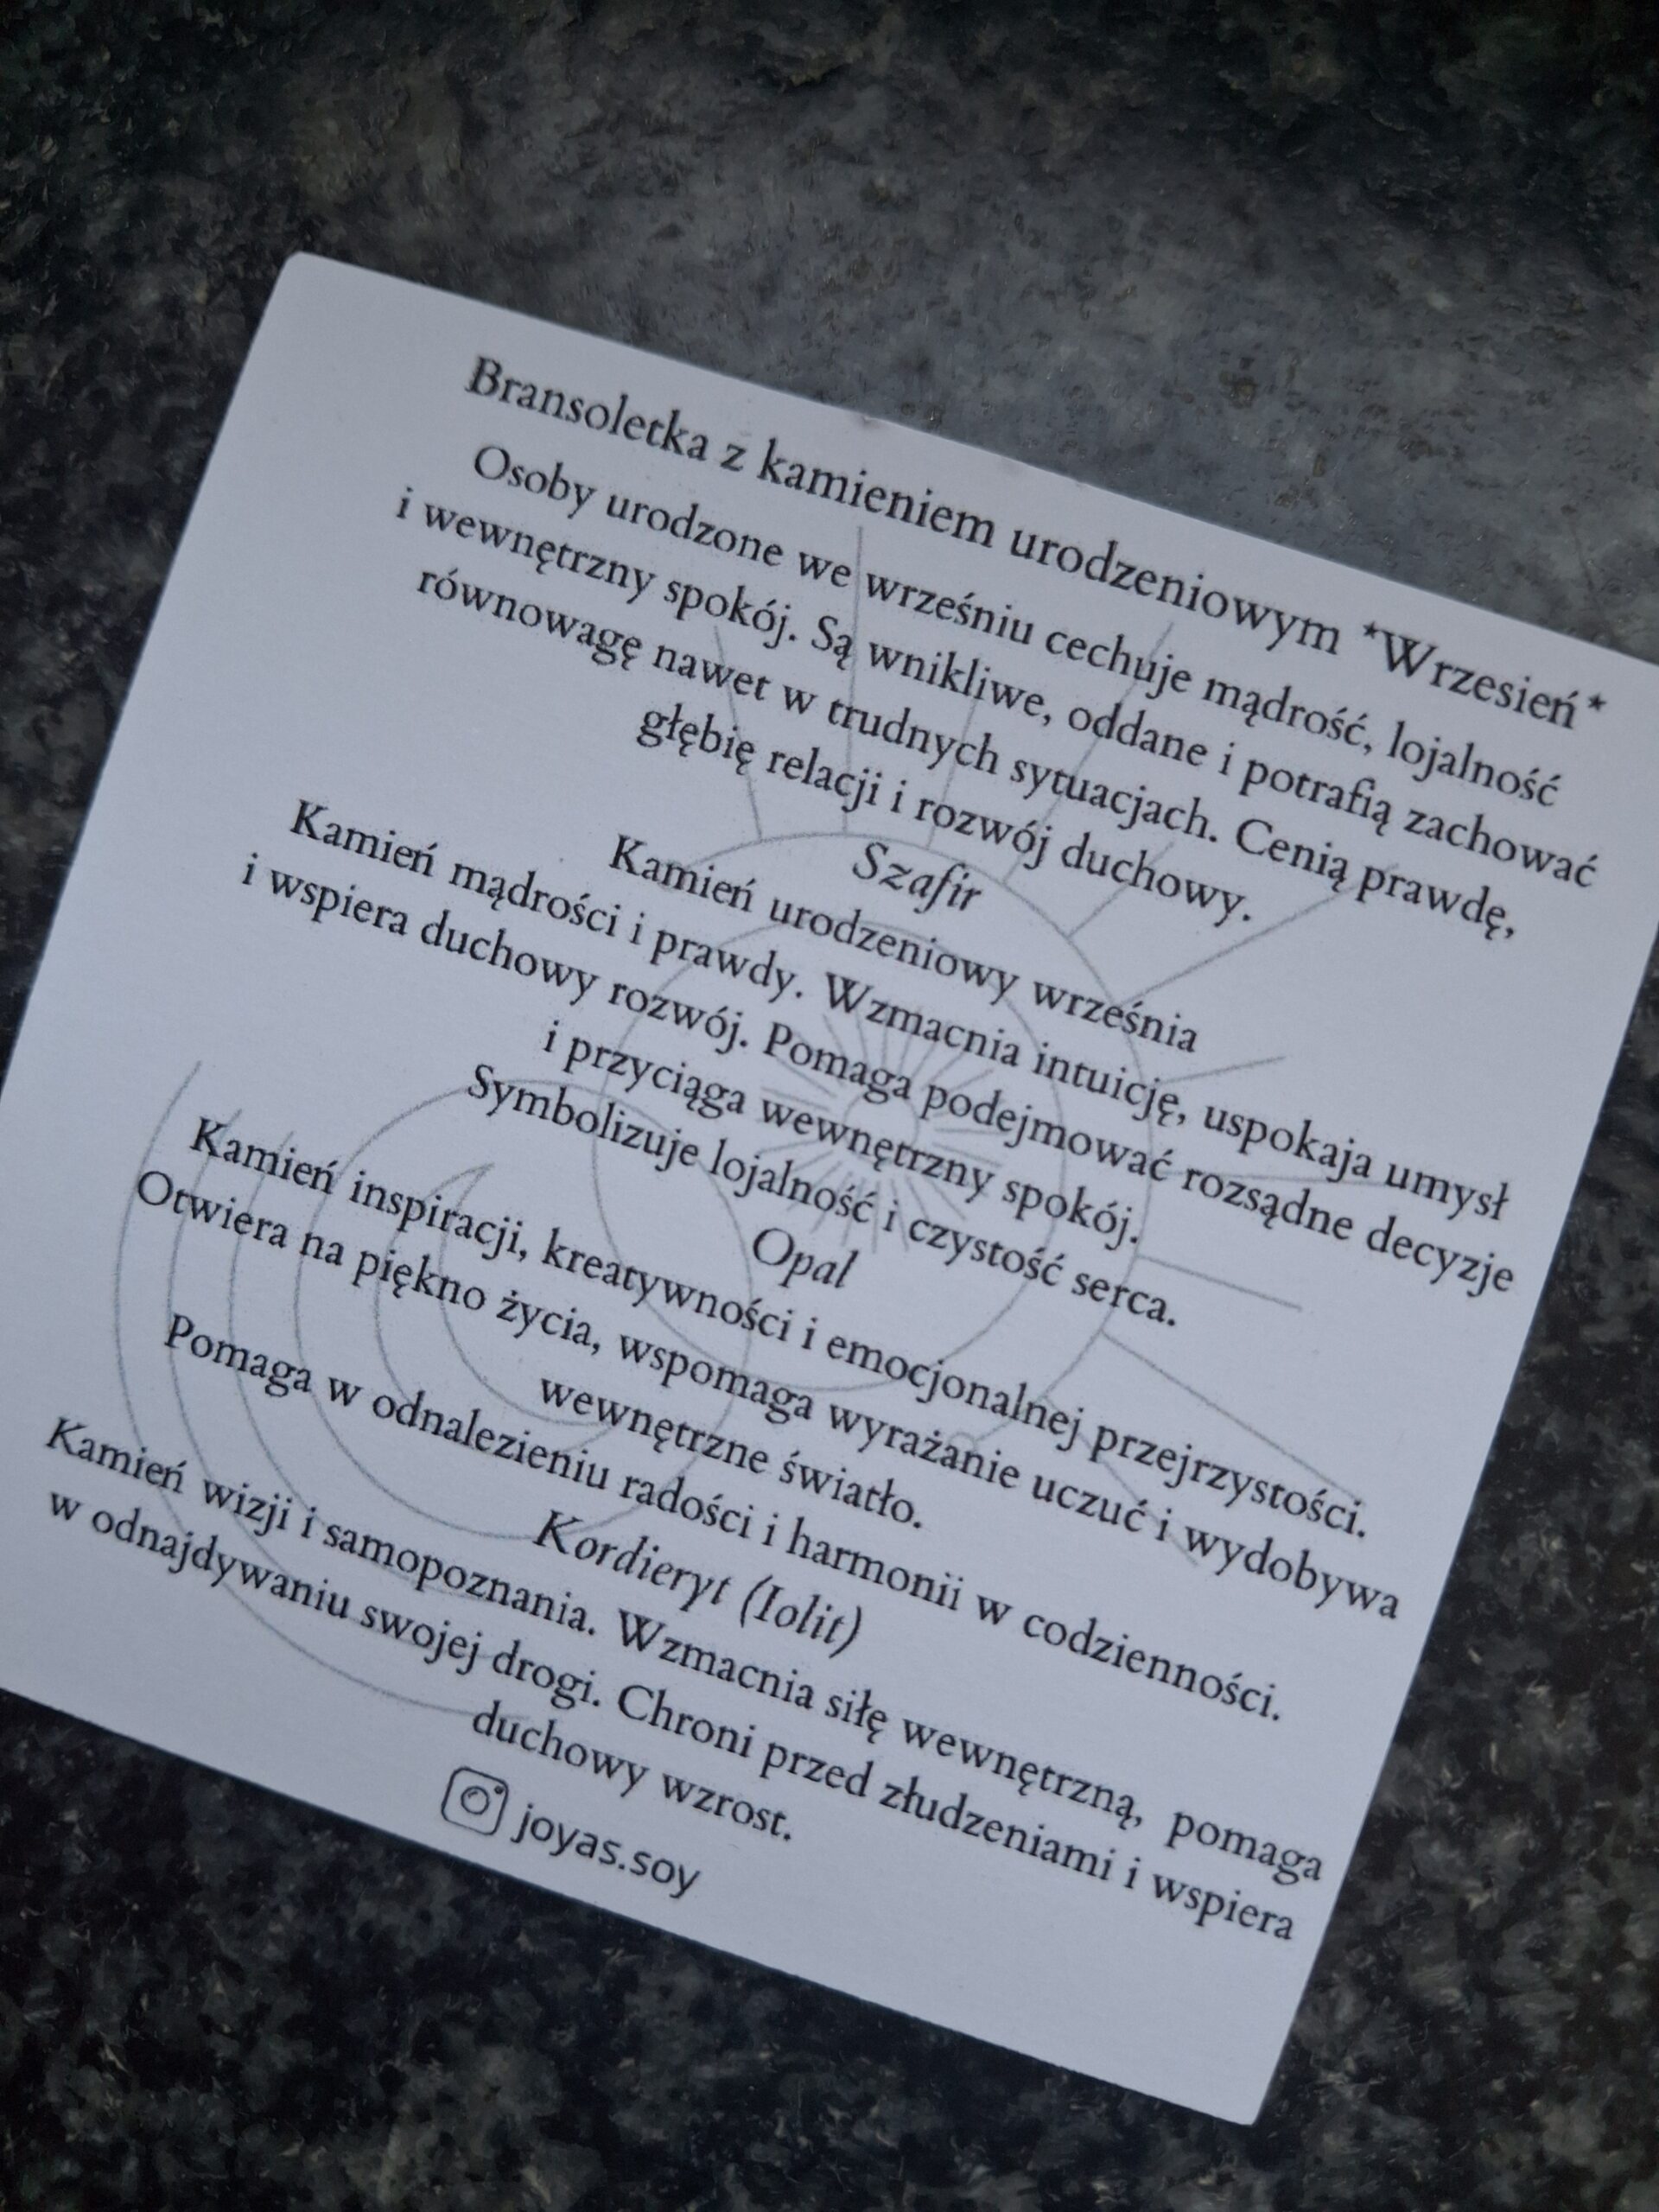 Bransoletka z kamieniem urodzeniowym *Wrzesień*
Osoby urodzone we wrześniu cechuje mądrość, lojalność
i wewnętrzny spokój. Są wnikliwe, oddane i potrafią zachować
równowagę nawet w trudnych sytuacjach. Cenią prawdę,
głębię relacji i rozwój duchowy.
Szafir
Kamień urodzeniowy września
Kamień mądrości i prawdy. Wzmacnia intuicję, uspokaja umysł
i wspiera duchowy rozwój. Pomaga podejmować rozsądne decyzje
i przyciąga wewnętrzny spokój.
Symbolizuje lojalność i czystość serca.
Opal
Kamień inspiracji, kreatywności i emocjonalnej przejrzystości.
Otwiera na piękno życia, wspomaga wyrażanie uczuć i wydobywa
wewnętrzne światło.
Pomaga w odnalezieniu radości i harmonii w codzienności.
Kordieryt (Iolit)
Kamień wizji i samopoznania. Wzmacnia siłę wewnętrzną, pomaga
w odnajdywaniu swojej drogi. Chroni przed złudzeniami i wspiera
duchowy wzrost.
joyas.soy